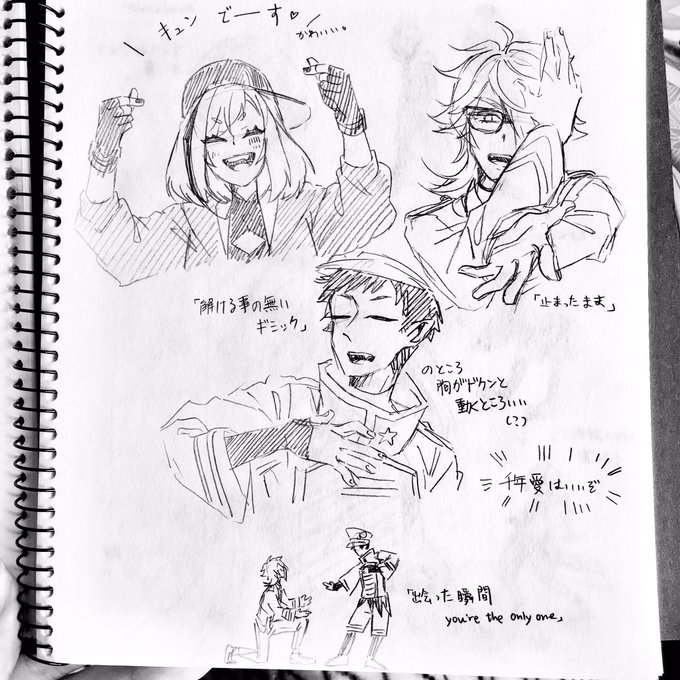 キュンでーす♡
かわいい。
「解ける事の無い
ギミック」
「止まったまま」
のところ
胸がドクンと
動くところいい
(?)
千年愛はいいぞ
「出会った瞬間
you're the only one」